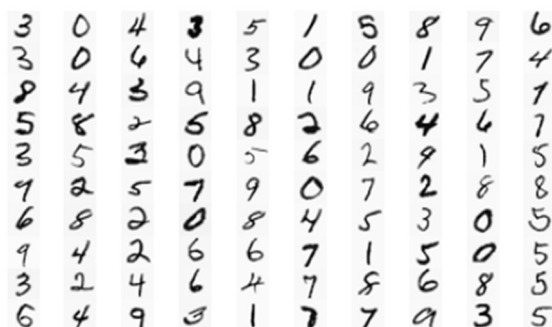 3 0 4 3 5 1 5 8 9 6
3 0 6 4 3 0 0 1 7 4
8 4 3 9 1 1 9 3 5 1
5 8 2 5 8 2 6 4 6 7
3 5 3 0 5 6 2 9 1 5
9 2 5 7 9 0 7 2 8 8
6 8 2 0 8 4 5 3 0 5
9 4 2 6 6 7 1 5 0 5
3 2 4 6 4 7 8 6 8 5
6 4 9 3 1 7 7 9 3 5